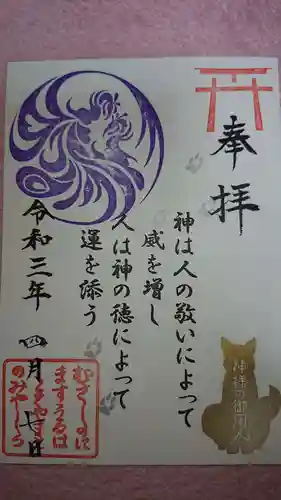 奉拝
神は人の敬いによって
威を増し
人は神の徳によって
運を添う
令和三年 四月 七日
むさしのに
ますうるは
のみやしろ
神様の御用人